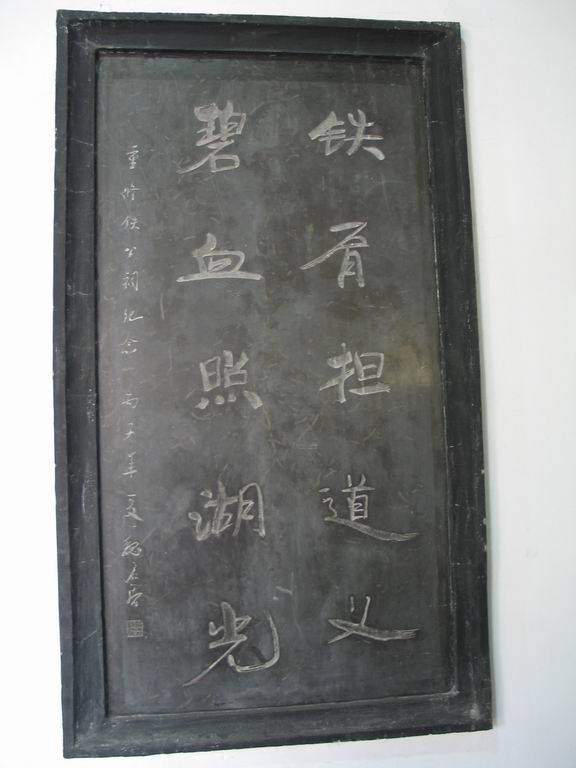 铁肩担道义
碧血照湖光
重修铁公祠纪念 丙子年夏魏启后